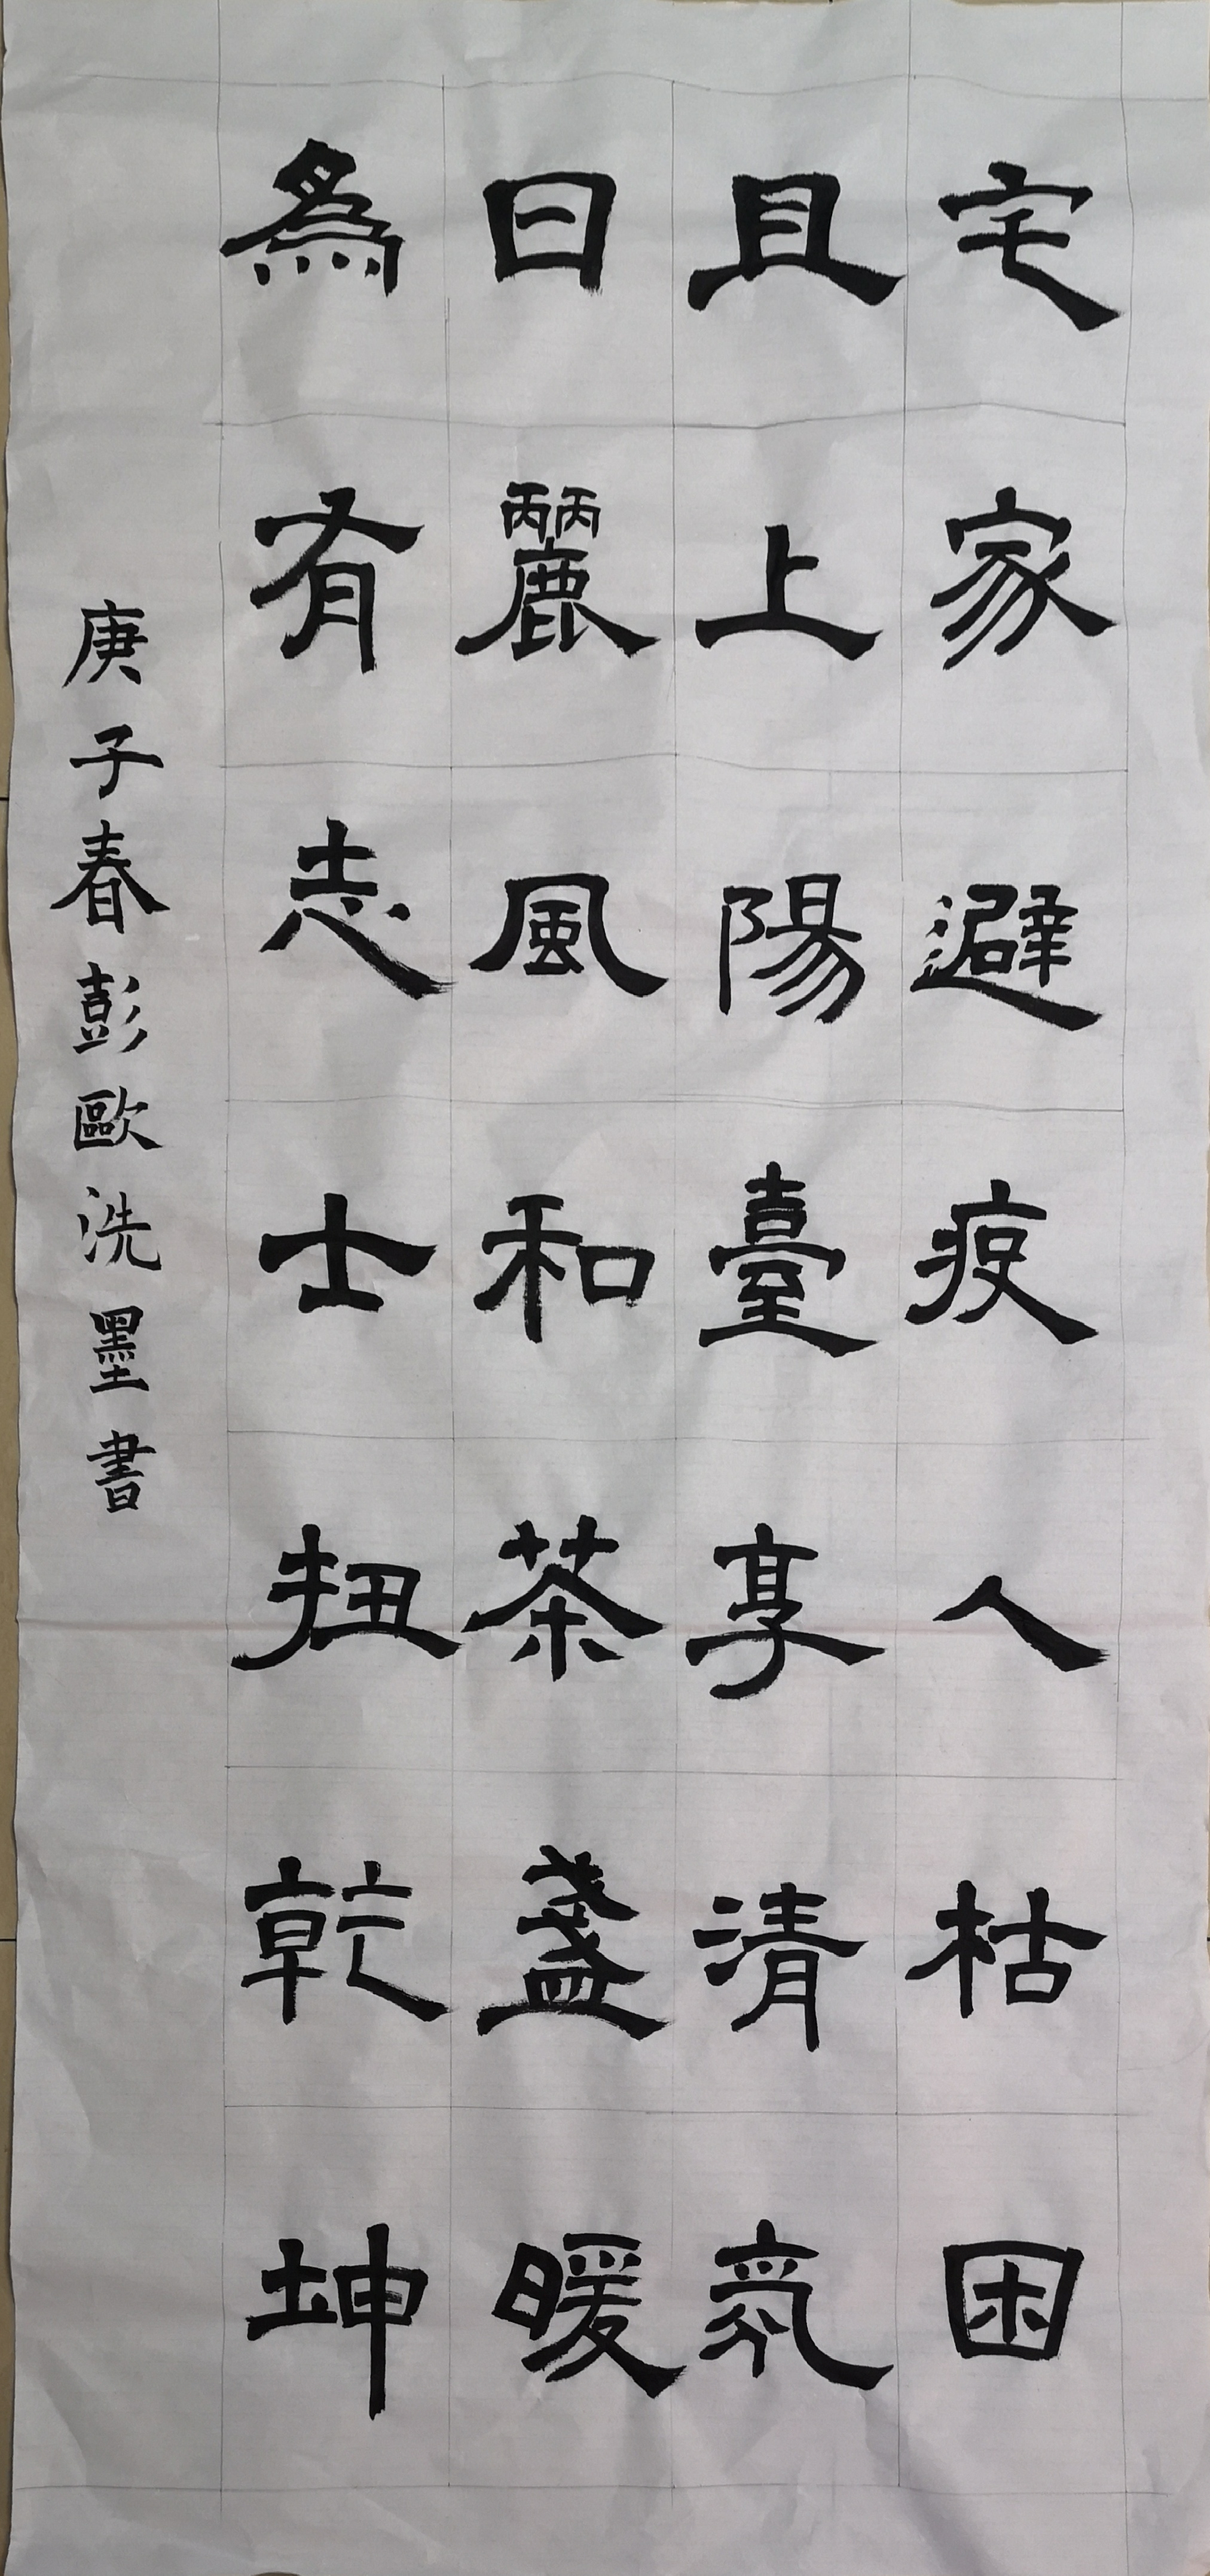 宅家避疫人枯困
且上陽臺享清氛
日麗風和茶盞暖
為有志士扭乾坤
庚子春彭歐洗墨書